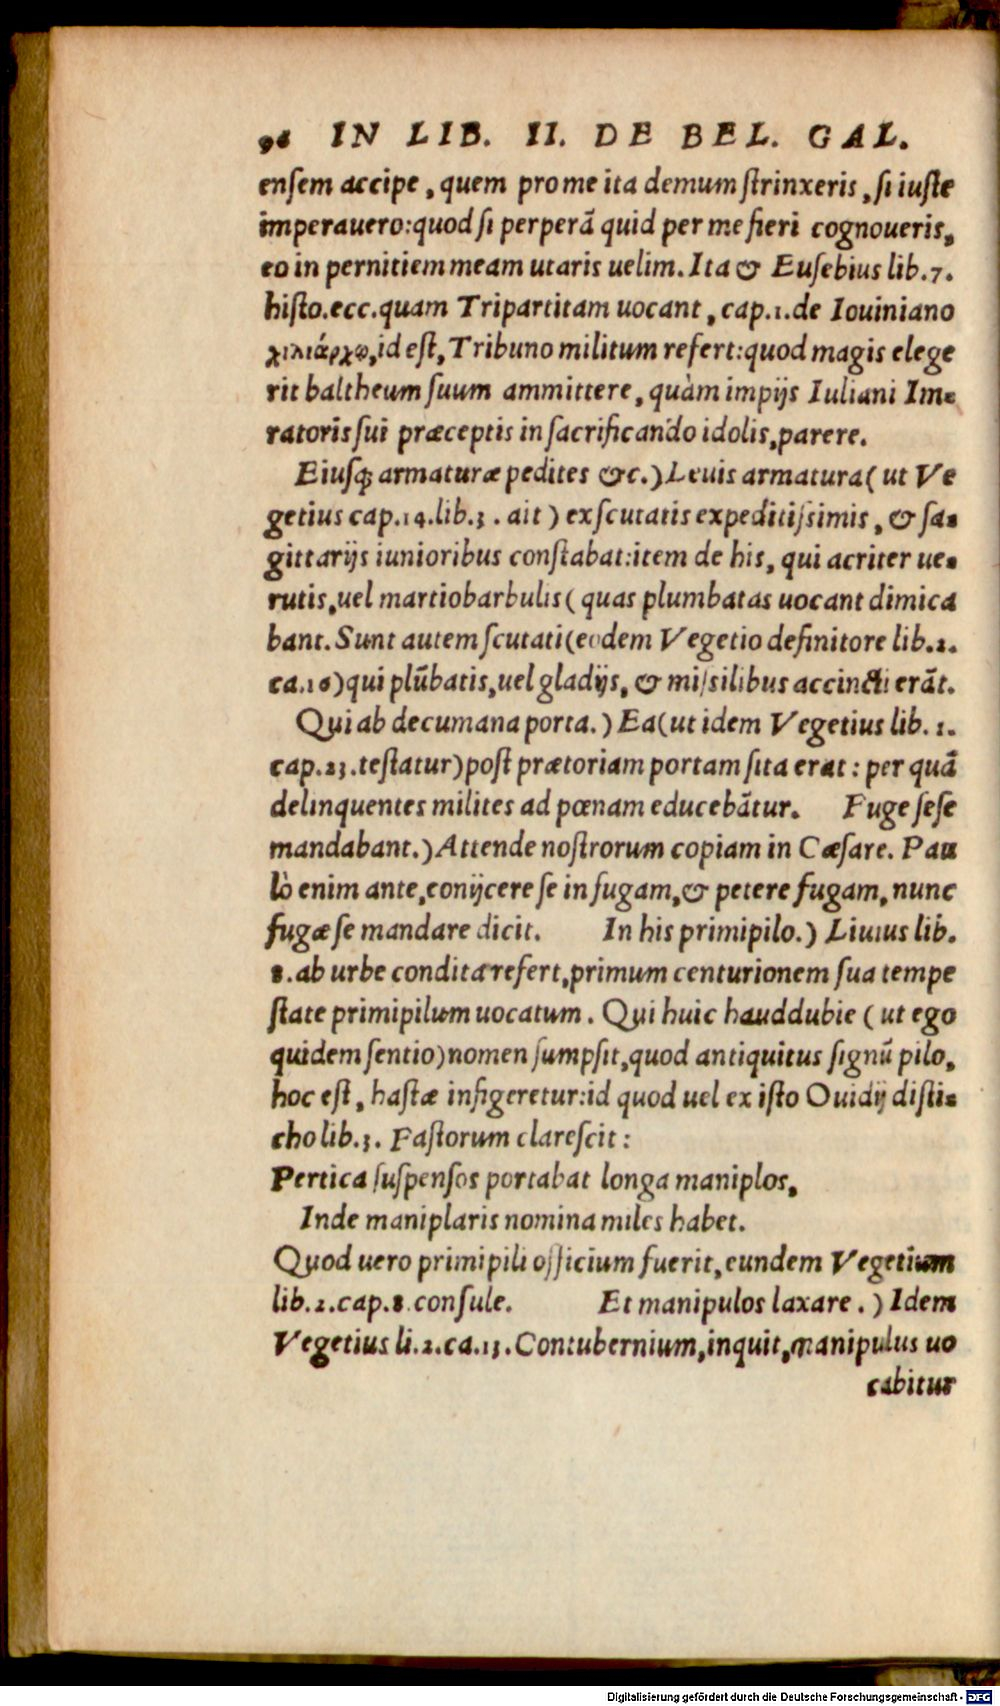 96 IN LIB. II. DE BEL. GAL.
enſem accipe, quem pro me ita demum ſtrinxeris, ſi iuſte
imperauero: quod ſi perperā quid per me fieri cognoueris,
eo in pernitiem meam utaris uelim. Ita & Euſebius lib. 7.
hiſto. ecc. quam Tripartitam uocant, cap. 1. de Iouiniano
χιλιάρχῳ, id eſt, Tribuno militum refert: quod magis elege
rit baltheum ſuum ammittere, quàm impijs Iuliani Im-
ratoris ſui præceptis in ſacrificando idolis, parere.
Eiuſq; armaturæ pedites &c.) Leuis armatura (ut Ve
getius cap. 14. lib. 3. ait) ex ſcutatis expeditiſsimis, & ſa-
gittarijs iunioribus conſtabat: item de his, qui acriter ue-
rutis, uel martiobarbulis (quas plumbatas uocant dimica
bant. Sunt autem ſcutati (eodem Vegetio definitore lib. 2.
ca. 16) qui plūbatis, uel gladijs, & miſsilibus accincti erāt.
Qui ab decumana porta.) Ea (ut idem Vegetius lib. 1.
cap. 23. teſtatur) poſt prætoriam portam ſita erat: per quā
delinquentes milites ad pœnam educebātur. Fugę ſeſe
mandabant.) Attende noſtrorum copiam in Cæſare. Pau
lò enim ante, conijcere ſe in fugam, & petere fugam, nunc
fugæ ſe mandare dicit. In his primipilo.) Liuius lib.
8. ab urbe condita refert, primum centurionem ſua tempe
ſtate primipilum uocatum. Qui huic hauddubie (ut ego
quidem ſentio) nomen ſumpſit, quod antiquitus ſignū pilo,
hoc eſt, haſtæ infigeretur: id quod uel ex iſto Ouidij diſti-
cho lib. 3. Faſtorum clareſcit:
Pertica ſuſpenſos portabat longa maniplos,
Inde maniplaris nomina miles habet.
Quod uero primipili officium fuerit, eundem Vegetium
lib. 2. cap. 8. conſule. Et manipulos laxare.) Idem
Vegetius li. 2. ca. 13. Contubernium, inquit, manipulus uo
cabitur
Digitalisierung gefördert durch die Deutsche Forschungsgemeinschaft - DFG